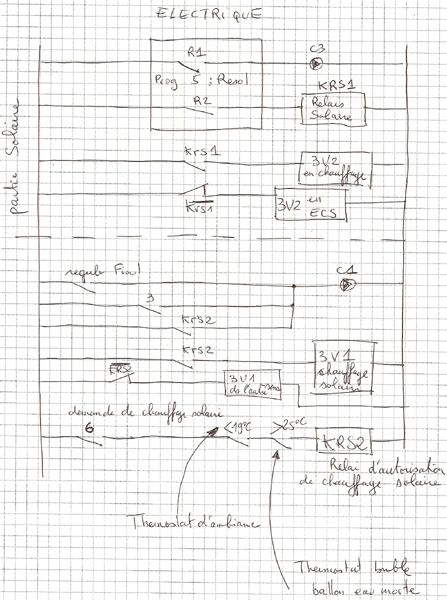 ELECTRIQUE
R1
C3
Prog 5 : Resol
KRS1
R2
Relais
Solaire
partie Solaire
KRS1
3V2
en chauffage
KRS1
3V2 en
ECS
regule Fioul
C1
3
KRS2
KRS2
3V1
chauffage
solaire
KRS2
3V1
de l'autre
demande de chauffage solaire
6
<19°C
>25°C
KRS2
Relai d'autorisation
de chauffage solaire
Thermostat d'ambiance
Thermostat
ballon eau morte